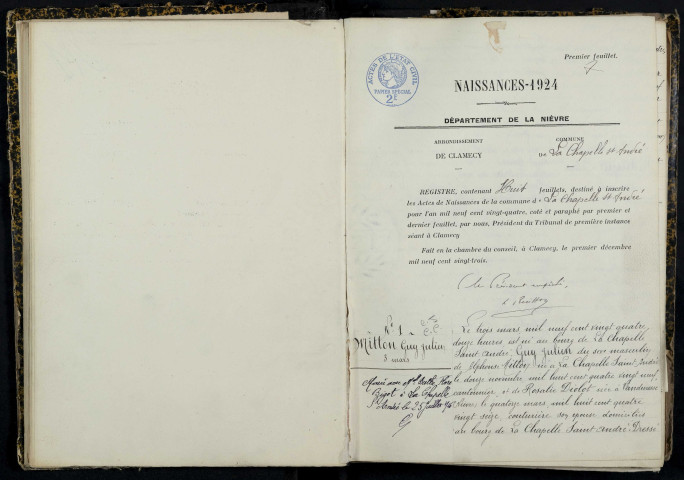 Premier feuillet.
ACTES DE L'ETAT CIVIL
PAPIER SPECIAL
2c
NAISSANCES-1924
DÉPARTEMENT DE LA NIÈVRE
ARRONDISSEMENT
DE CLAMECY
COMMUNE
DE La Chapelle St André
REGISTRE, contenant Huit feuillets, destiné à inscrire
les Actes de Naissances de la commune d La Chapelle St André
pour l'an mil neuf cent vingt-quatre, coté et paraphé par premier et
dernier feuillet, par nous, Président du Tribunal de première instance
séant à Clamecy
Fait en la chambre du conseil, à Clamecy, le premier décembre
mil neuf cent vingt-trois.
N° 1
Mitton Guy Julien
3 mars
Marié avec
à La Chapelle
St André le 25 juillet
Le trois mars mil neuf cent vingt quatre
heures est né au bourg de La Chapelle
Saint André Guy Julien du sexe masculin
de Alphonse Mitton né à La Chapelle Saint André
le douze novembre mil huit cent quatre vingt neuf
cantonnier, et de Rosalie née à
le quatorze mars mil huit cent quatre
vingt seize, couturière son épouse domiciliés
au bourg de La Chapelle Saint André Dressé